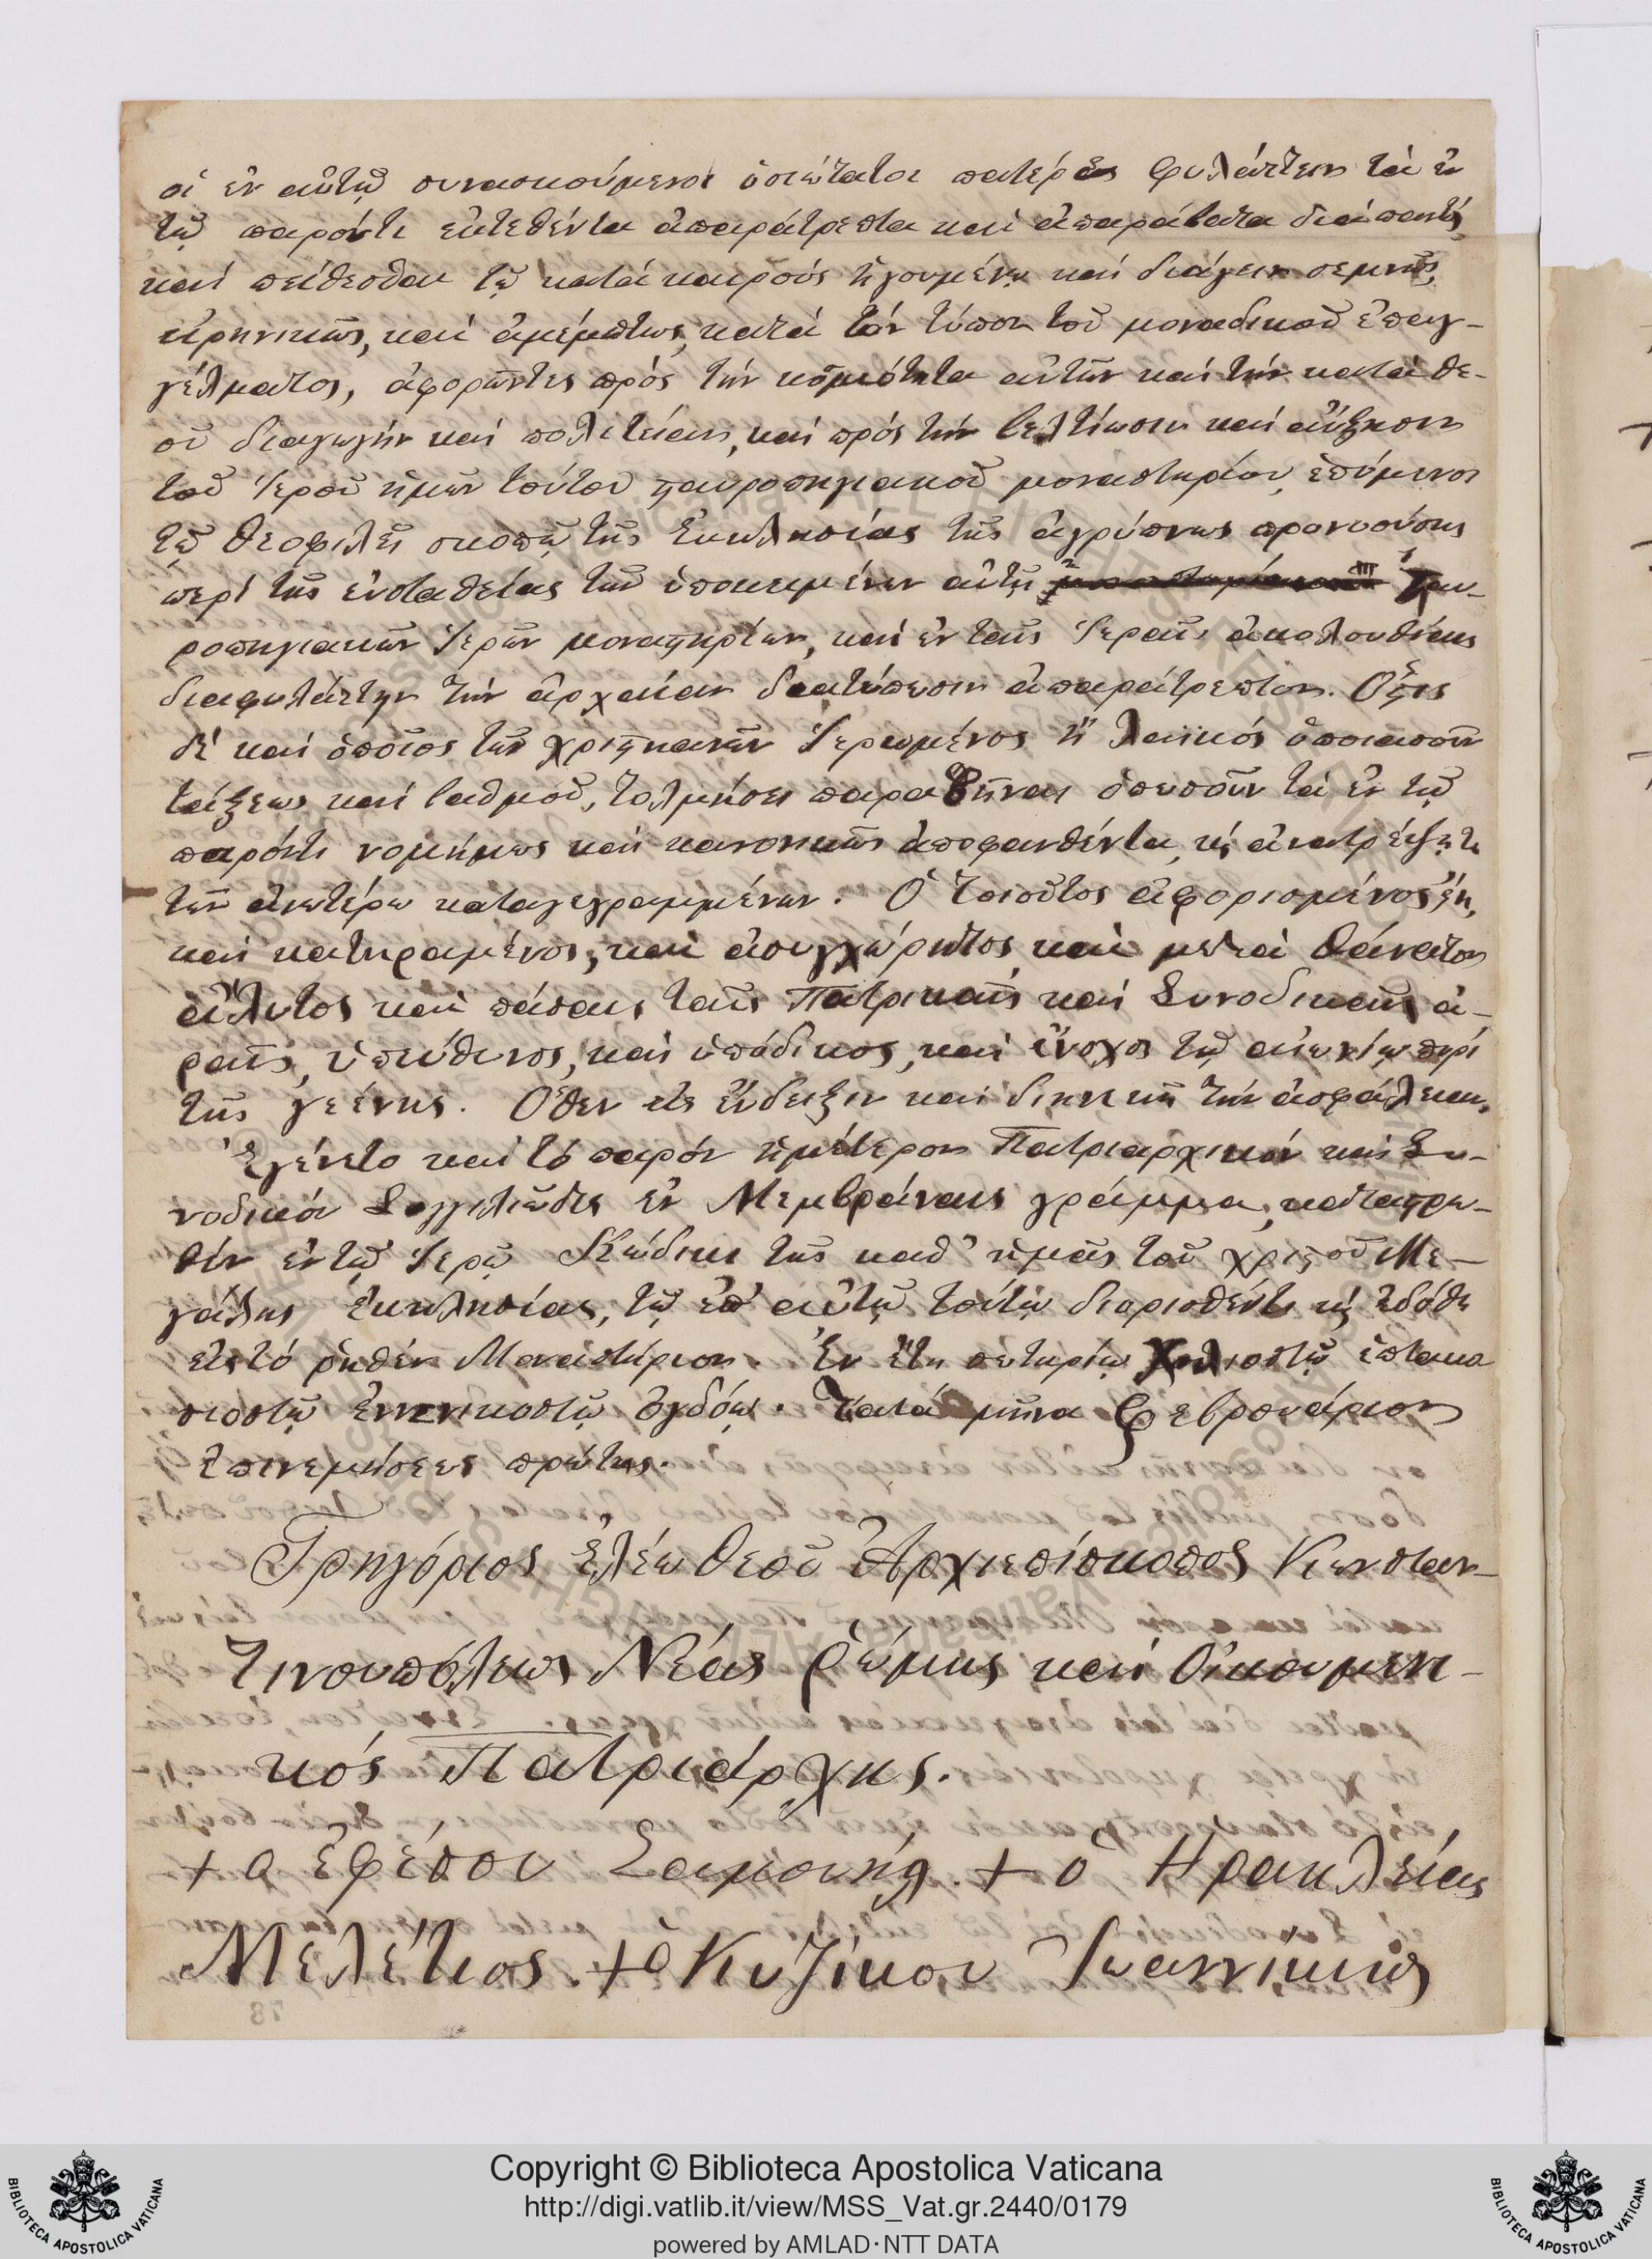 οἱ ἐν αὐτῷ συνασκούμενοι ὁσιώτατοι πατέρες φυλάττειν τὰ ἐν
τῷ παρόντι ἐκτεθέντα ἀπαράτρεπτα καὶ ἀπαράβατα διάπαντός,
καὶ πείθεσθαι τῷ κατά καιρούς ἡγουμένῳ καί διάγειν σεμνῶς,
εἰρηνικῶς, καὶ ἀμέμπτως, κατά τόν τύπον τοῦ μοναδικοῦ ἐπαγ-
γέλματος, ἀφορῶντες πρός τήν κοσμιότητα αὐτῶν καί τήν κατά θε-
οῦ διαγωγήν καί πολιτείαν, καί πρός τήν βελτίωσιν καί αὔξησιν
τοῦ ἱεροῦ ἡμῶν τούτου σταυροπηγιακοῦ μοναστηρίου, ἑπόμενοι
τῷ θεοφιλεῖ σκοπῷ τῆς Ἐκκλησίας τῆς ἀγρύπνως προνοούσης
περί τῆς εὐσταθείας τῶν ὑποκειμένων αὐτῇ Σταυ-
ροπηγιακῶν ἱερῶν μοναστηρίων, καί ἐν ταῖς ἱεραῖς ἀκολουθίαις
διαφυλάττην τήν ἀρχαίαν διατύπωσιν ἀπαράτρεπτον. Ὅστις
δέ καί ὁποῖος τῶν χριστιανῶν ἱερωμένος ἤ λαϊκός ὁποιασοῦν
τάξεως καί βαθμοῦ, τολμήσει παραβῆναι ὁπωσοῦν τά ἐν τῷ
παρόντι νομήμως καί κανονικῶς ἀποφανθέντα, καὶ ἀνατρέψῃ τι
τῶν ἀνωτέρω καταγεγραμμένων. Ὁ τοιοῦτος ἀφορισμένος εἴη,
καί κατηραμένος, καί ἀσυγχώρητος καί μετά θάνατον
ἄλυτος καί πάσαις ταῖς Πατρικαῖς καί Συνοδικαῖς ἀ-
ραῖς, ὑπεύθυνος, καί ὑπόδικος, καί ἔνοχος τῷ αἰωνίῳ πυρί
τῆς γεένης. Ὅθεν εἰς ἔνδειξιν καί διηνεκῆ τήν ἀσφάλειαν,
Ἐγένετο καί τό παρόν ἡμέτερον Πατριαρχικόν καί Συ-
νοδικόν Σιγγιλιῶδες ἐν Μεμβράναις γράμμα, καταστρω-
θέν ἐν τῷ ἱερῷ Κώδικι τῆς καθ᾽ ἡμᾶς τοῦ χριστοῦ Με-
γάλης Ἐκκλησίας, τῷ ἐπ᾽ αὐτῷ τούτῳ διορισθέντι καὶ ἐδόθη
εἰς τό ῥηθέν Μοναστήριον. Ἐν ἔτη σωτηρίῳ Χιλιοστῷ ἑπτακο
σιοστῷ ἐννενικοστῷ ὀγδόῳ. Κατά μῆνα Φεβρουάριον
Ἐπινεμήσεως πρώτης.
Γρηγόριος ἐλέῳ θεοῦ Ἀρχιεπίσκοπος Κωνσταν-
τινουπόλεως Νέας Ῥώμης καί Οἰκουμενι-
κός Πατριάρχης.
+ ὁ Ἐφέσου Σαμουήλ. + ὁ Ηρακλείας
Μελέτιος. + ὁ Κυζίκου Ἰωαννίκιος
Copyright © Biblioteca Apostolica Vaticana
http://digi.vatlib.it/view/MSS_Vat.gr.2440/0179
powered by AMLAD·NTT DATA
BIBLIOTECA APOSTOLICA VATICANA
BIBLIOTECA APOSTOLICA VATICANA